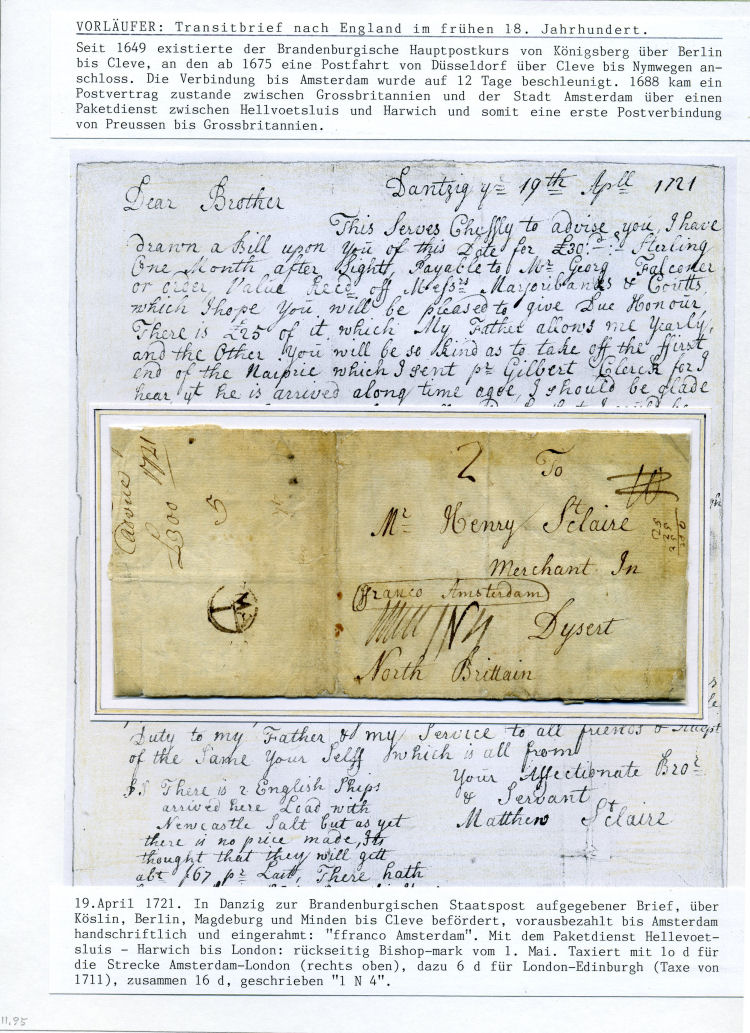 VORLÄUFER: Transitbrief nach England im frühen 18. Jahrhundert.
Seit 1649 existierte der Brandenburgische Hauptpostkurs von Königsberg über Berlin
bis Cleve, an den ab 1675 eine Postfahrt von Düsseldorf über Cleve bis Nymwegen an-
schloss. Die Verbindung bis Amsterdam wurde auf 12 Tage beschleunigt. 1688 kam ein
Postvertrag zustande zwischen Grossbritannien und der Stadt Amsterdam über einen
Paketdienst zwischen Hellvoetsluis und Harwich und somit eine erste Postverbindung
von Preussen bis Grossbritannien.
Dantzig ye 19th Apll 1721
Dear Brother
This Serves Cheffly to advise you, I have
drawn a Bill upon You of this Date for £30:-:- Sterling
One Month after Sight, Payable to Mr Georg Falconer
or order, Value Recd off Messrs Marjoribanks & Coutts,
which I hope You will be pleased to give Due Honour,
There is £25 of it which My Father allows me Yearly,
and the Other You will be so kind as to take off the ffirst
end of the Naiprie which I sent pr Gilbert Clerck for I
hear yt he is arrived along time agoe, I should be glade
2
To
Mr Henry St Claire
Merchant In
ffranco Amsterdam
Dysert
North Brittain
1721
£300
5
MA
1
Duty to my Father & my Service to all friends &
of the Same Your Selff which is all from
Your Affectionate Bror
& Servant
Matthew St Claire
PS There is 2 English Ships
arrived here Load with
Newcastle Salt but as yet
there is no price made, Its
thought that they will gett
abt f67 pr Last, There hath
19.April 1721. In Danzig zur Brandenburgischen Staatspost aufgegebener Brief, über
Köslin, Berlin, Magdeburg und Minden bis Cleve befördert, vorausbezahlt bis Amsterdam
handschriftlich und eingerahmt: "ffranco Amsterdam". Mit dem Paketdienst Hellevoet-
sluis - Harwich bis London: rückseitig Bishop-mark vom 1. Mai. Taxiert mit lo d für
die Strecke Amsterdam-London (rechts oben), dazu 6 d für London-Edinburgh (Taxe von
1711), zusammen 16 d, geschrieben "1 N 4".
11.95